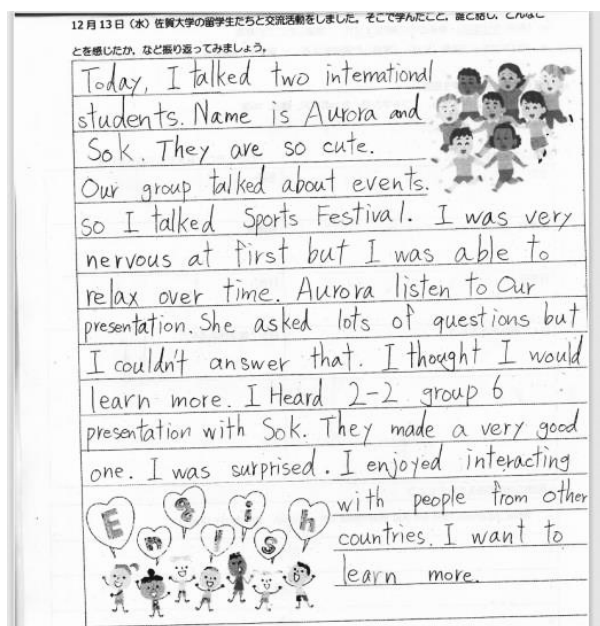 12月13日（水）佐賀大学の留学生たちと交流活動をしました。そこで学んだこと、誰と話し、どんなこ
とを感じたか、など振り返ってみましょう。
Today, I talked two international
students. Name is Aurora and
Sok. They are so cute.
Our group talked about events.
so I talked Sports Festival. I was very
nervous at first but I was able to
relax over time. Aurora listen to Our
presentation. She asked lots of questions but
I couldn't answer that. I thought I would
learn more. I Heard 2-2 group 6
presentation with Sok. They made a very good
one. I was surprised. I enjoyed interacting
with people from other
countries. I want to
learn more.
English